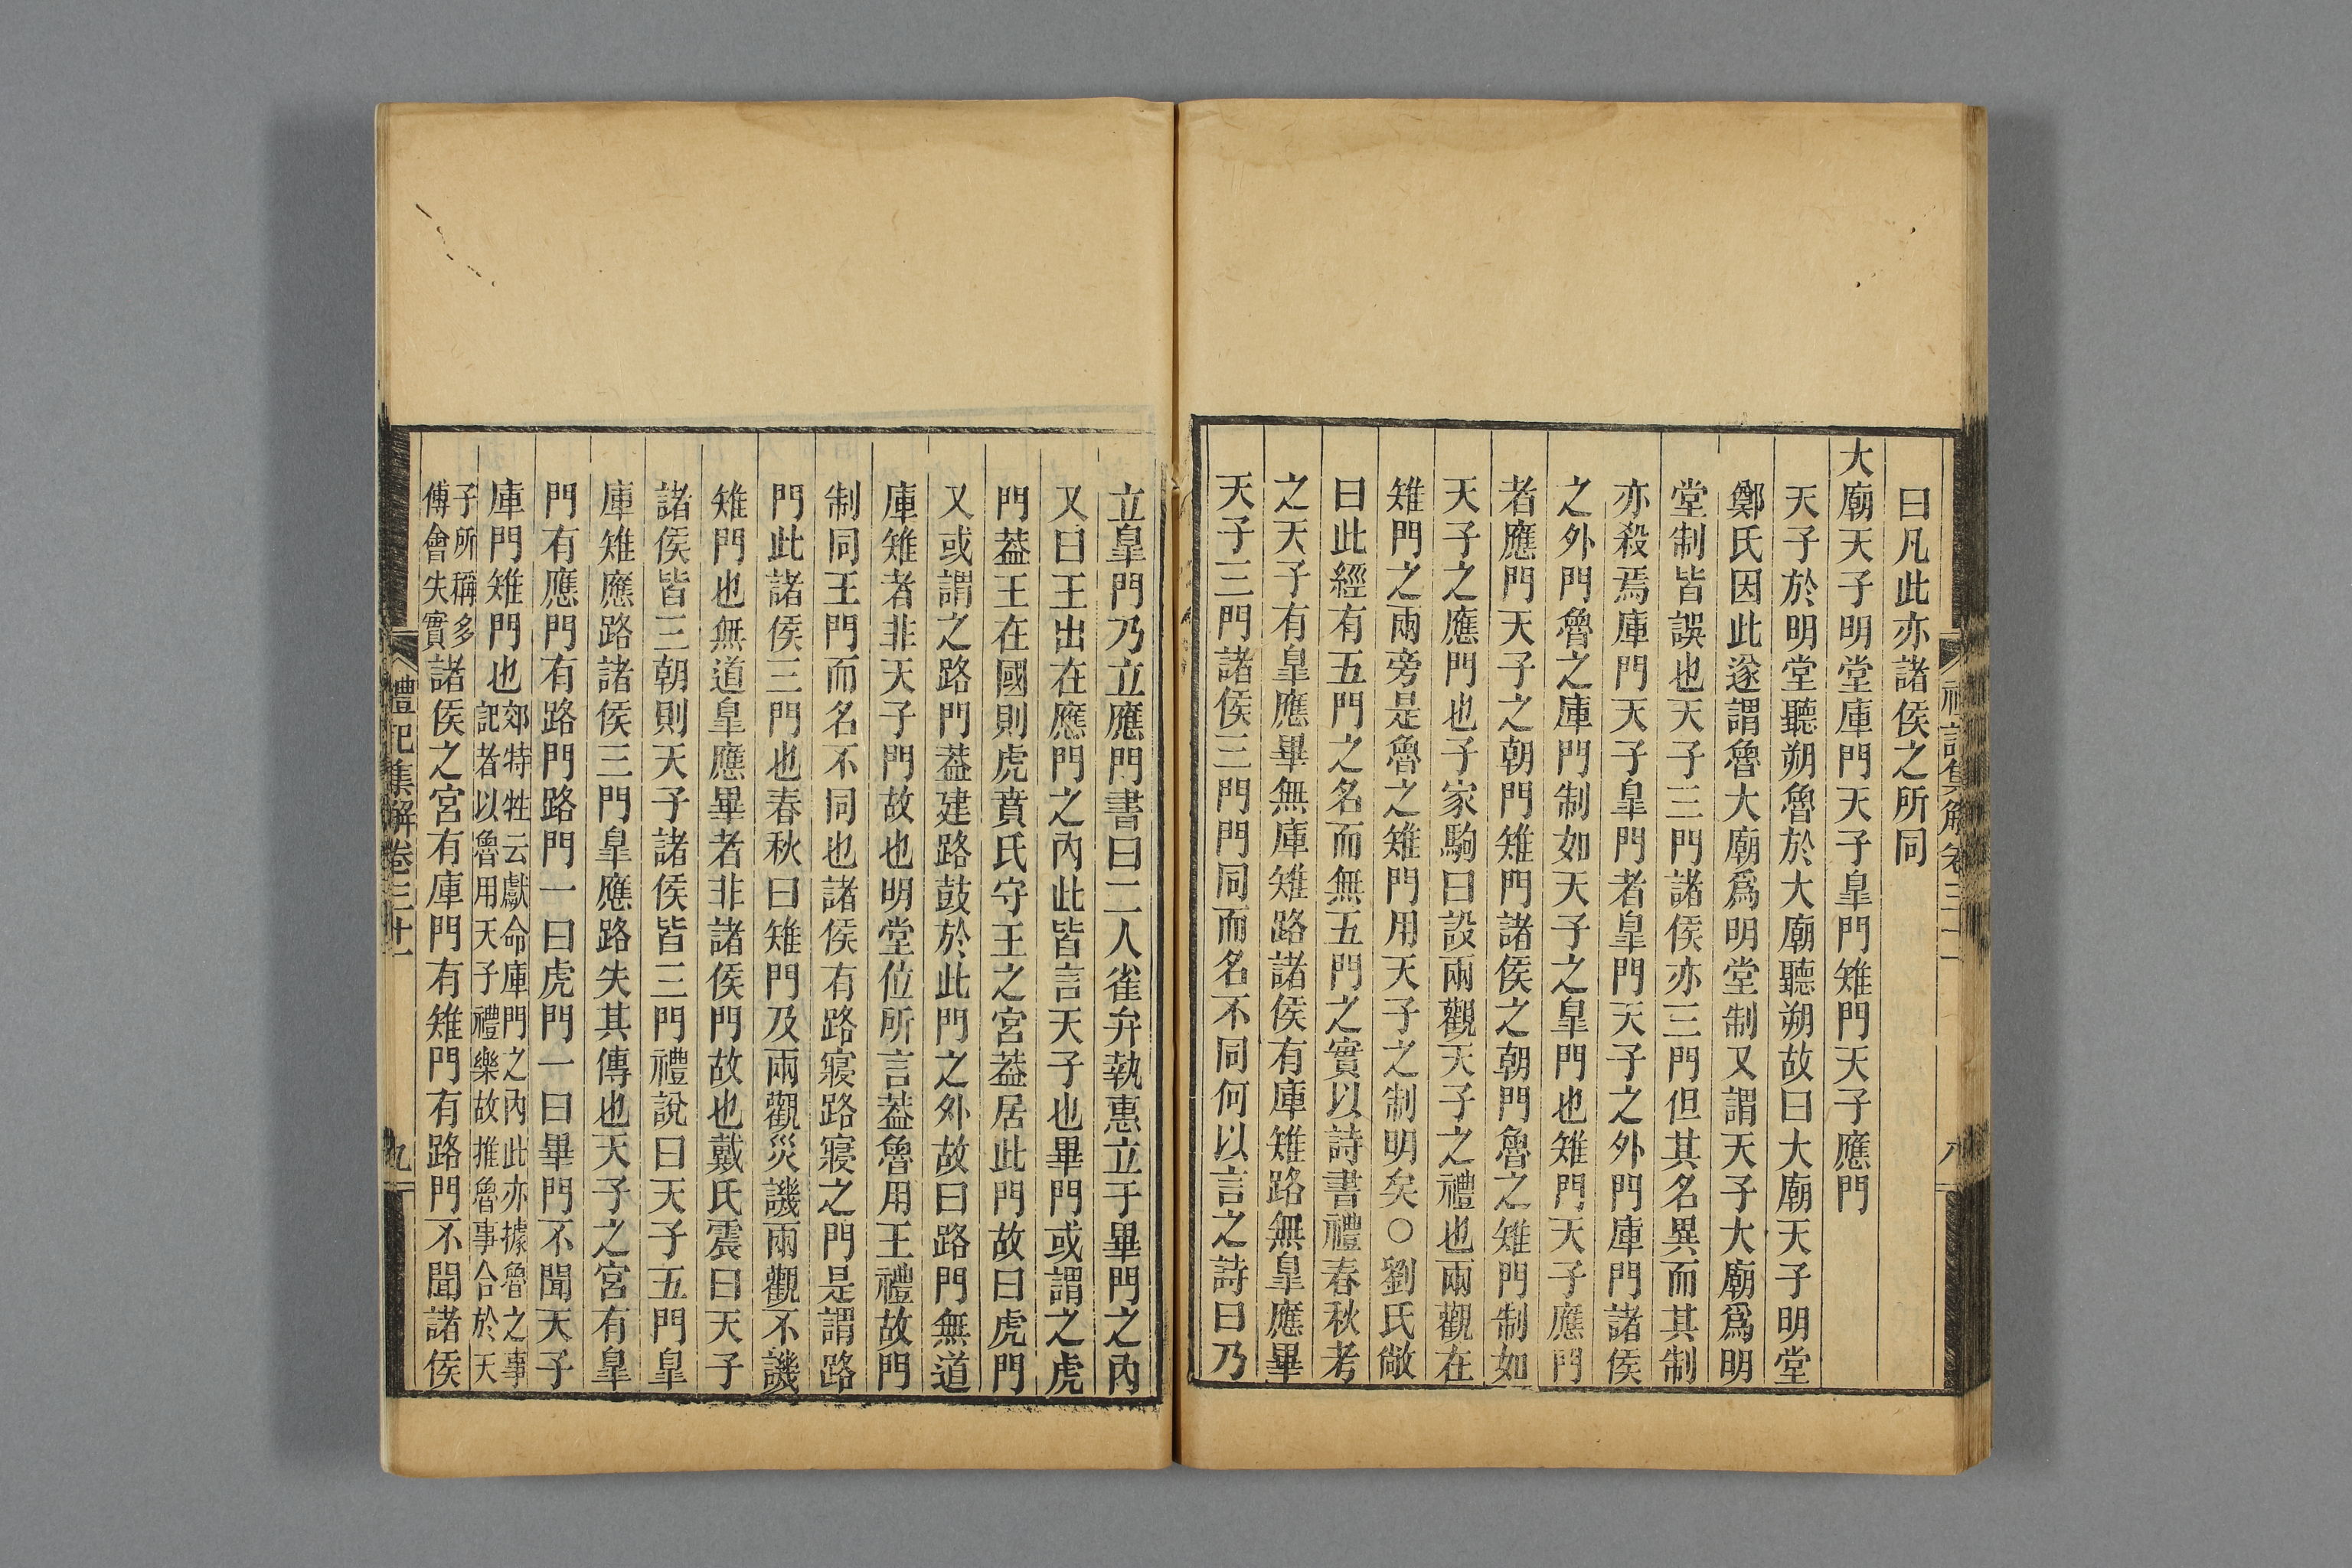 曰凡此亦諸侯之所同
大廟天子明堂庫門天子臯門雉門天子應門
天子於明堂聽朔魯於大廟聽朔故曰大廟天子明堂
鄭氏因此遂謂魯大廟爲明堂制又謂天子大廟爲明
堂制皆誤也天子三門諸侯亦三門但其名異而其制
亦殺焉庫門天子臯門者臯門天子之外門庫門諸侯
之外門魯之庫門制如天子之臯門也雉門天子應門
者應門天子之朝門雉門諸侯之朝門魯之雉門制如
天子之應門也子家駒曰設兩觀天子之禮也兩觀在
雉門之兩旁是魯之雉門用天子之制明矣○劉氏敞
曰此經有五門之名而無五門之實以詩書禮春秋考
之天子有臯應畢無庫雉路諸侯有庫雉路無臯應畢
天子三門諸侯三門門同而名不同何以言之詩曰乃
立臯門乃立應門書曰二人雀弁執惠立于畢門之內
又曰王出在應門之內此皆言天子也畢門或謂之虎
門葢王在國則虎賁氏守王之宮葢居此門故曰虎門
又或謂之路門葢建路鼓於此門之外故曰路門無道
庫雉者非天子門故也明堂位所言葢魯用王禮故門
制同王門而名不同也諸侯有路寢路寢之門是謂路
門此諸侯三門也春秋曰雉門及兩觀災譏兩觀不譏
雉門也無道臯應畢者非諸侯門故也戴氏震曰天子
諸侯皆三朝則天子諸侯皆三門禮說曰天子五門臯
庫雉應路諸侯三門臯應路失其傳也天子之宮有臯
門有應門有路門路門一曰虎門一曰畢門不聞天子
庫門雉門也郊特牲云獻命庫門之內此亦據魯之事
記者以魯用天子禮樂故推魯事合於天
子所稱多
傅會失實諸侯之宮有庫門有雉門有路門不聞諸侯
禮記集解卷三十一
九